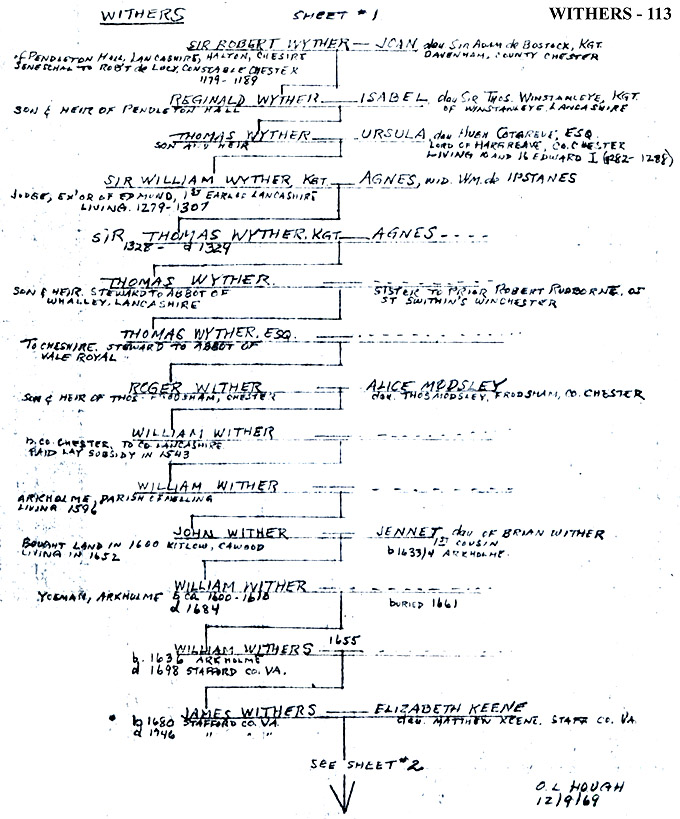 WITHERS SHEET #1 WITHERS - 113
SIR ROBERT WYTHER — JOAN, dau Sir Adam de Bostock, KGT.
of PENDLETON HALL, LANCASHIRE, HALTON, CHESIRE DAVENHAM, COUNTY CHESTER
SENESCHAL TO ROBT de LUCY, CONSTABLE CHESTER
1179 - 1189
REGINALD WYTHER — ISABEL, dau Sir Thos. WINSTANLEYE, KGT.
SON & HEIR OF PENDLETON HALL OF WINSTANLEYE, LANCASHIRE
THOMAS WYTHER — URSULA, dau HUGH COTGREVE, ESQ.
SON AND HEIR LORD OF HARGREAVE, CO. CHESTER
LIVING 10 AND 16 EDWARD I (1282 - 1288)
SIR WILLIAM WYTHER, KGT. — AGNES, WID. WM. de IPSTANES
JUDGE, EX'OR OF EDMUND, 1ST EARL OF LANCASHIRE
LIVING. 1279 - 1307
SIR THOMAS WYTHER, KGT — AGNES - - - -
1328 - d 1329
THOMAS WYTHER.
SON & HEIR. STEWARD TO ABBOT OF SISTER TO PRIOR ROBERT RUDBORNE, OF
WHALLEY, LANCASHIRE ST SWITHIN'S WINCHESTER
THOMAS WYTHER, ESQ.
TO CHESHIRE. STEWARD TO ABBOT OF
VALE ROYAL
ROGER WITHER — ALICE MODSLEY
SON & HEIR OF THOS. FRODSHAM, CHESTER dau. THOS MODSLEY, FRODSHAM, CO. CHESTER
WILLIAM WITHER
b. CO. CHESTER, TO CO. LANCASHIRE
PAID LAY SUBSIDY IN 1543
WILLIAM WITHER
ARKHOLME, PARISH OF MELLING
LIVING 1596
JOHN WITHER — JENNET, dau OF BRIAN WITHER
BOUGHT LAND IN 1600 KITLOW, CAWOOD 1ST COUSIN
LIVING IN 1652 b 1633/4 ARKHOLME.
WILLIAM WITHER
YOEMAN, ARKHOLME b ca 1600 - 1610 BURIED 1661
d 1684
WILLIAM WITHERS 1655
b. 1636 ARKHOLME
d 1698 STAFFORD CO. VA.
JAMES WITHERS — ELIZABETH KEENE
b 1680 STAFFORD CO. VA. dau. MATTHEW KEENE, STAFF CO. VA
d 1746 " " "
SEE SHEET #2
O. L HOUGH
12/9/69